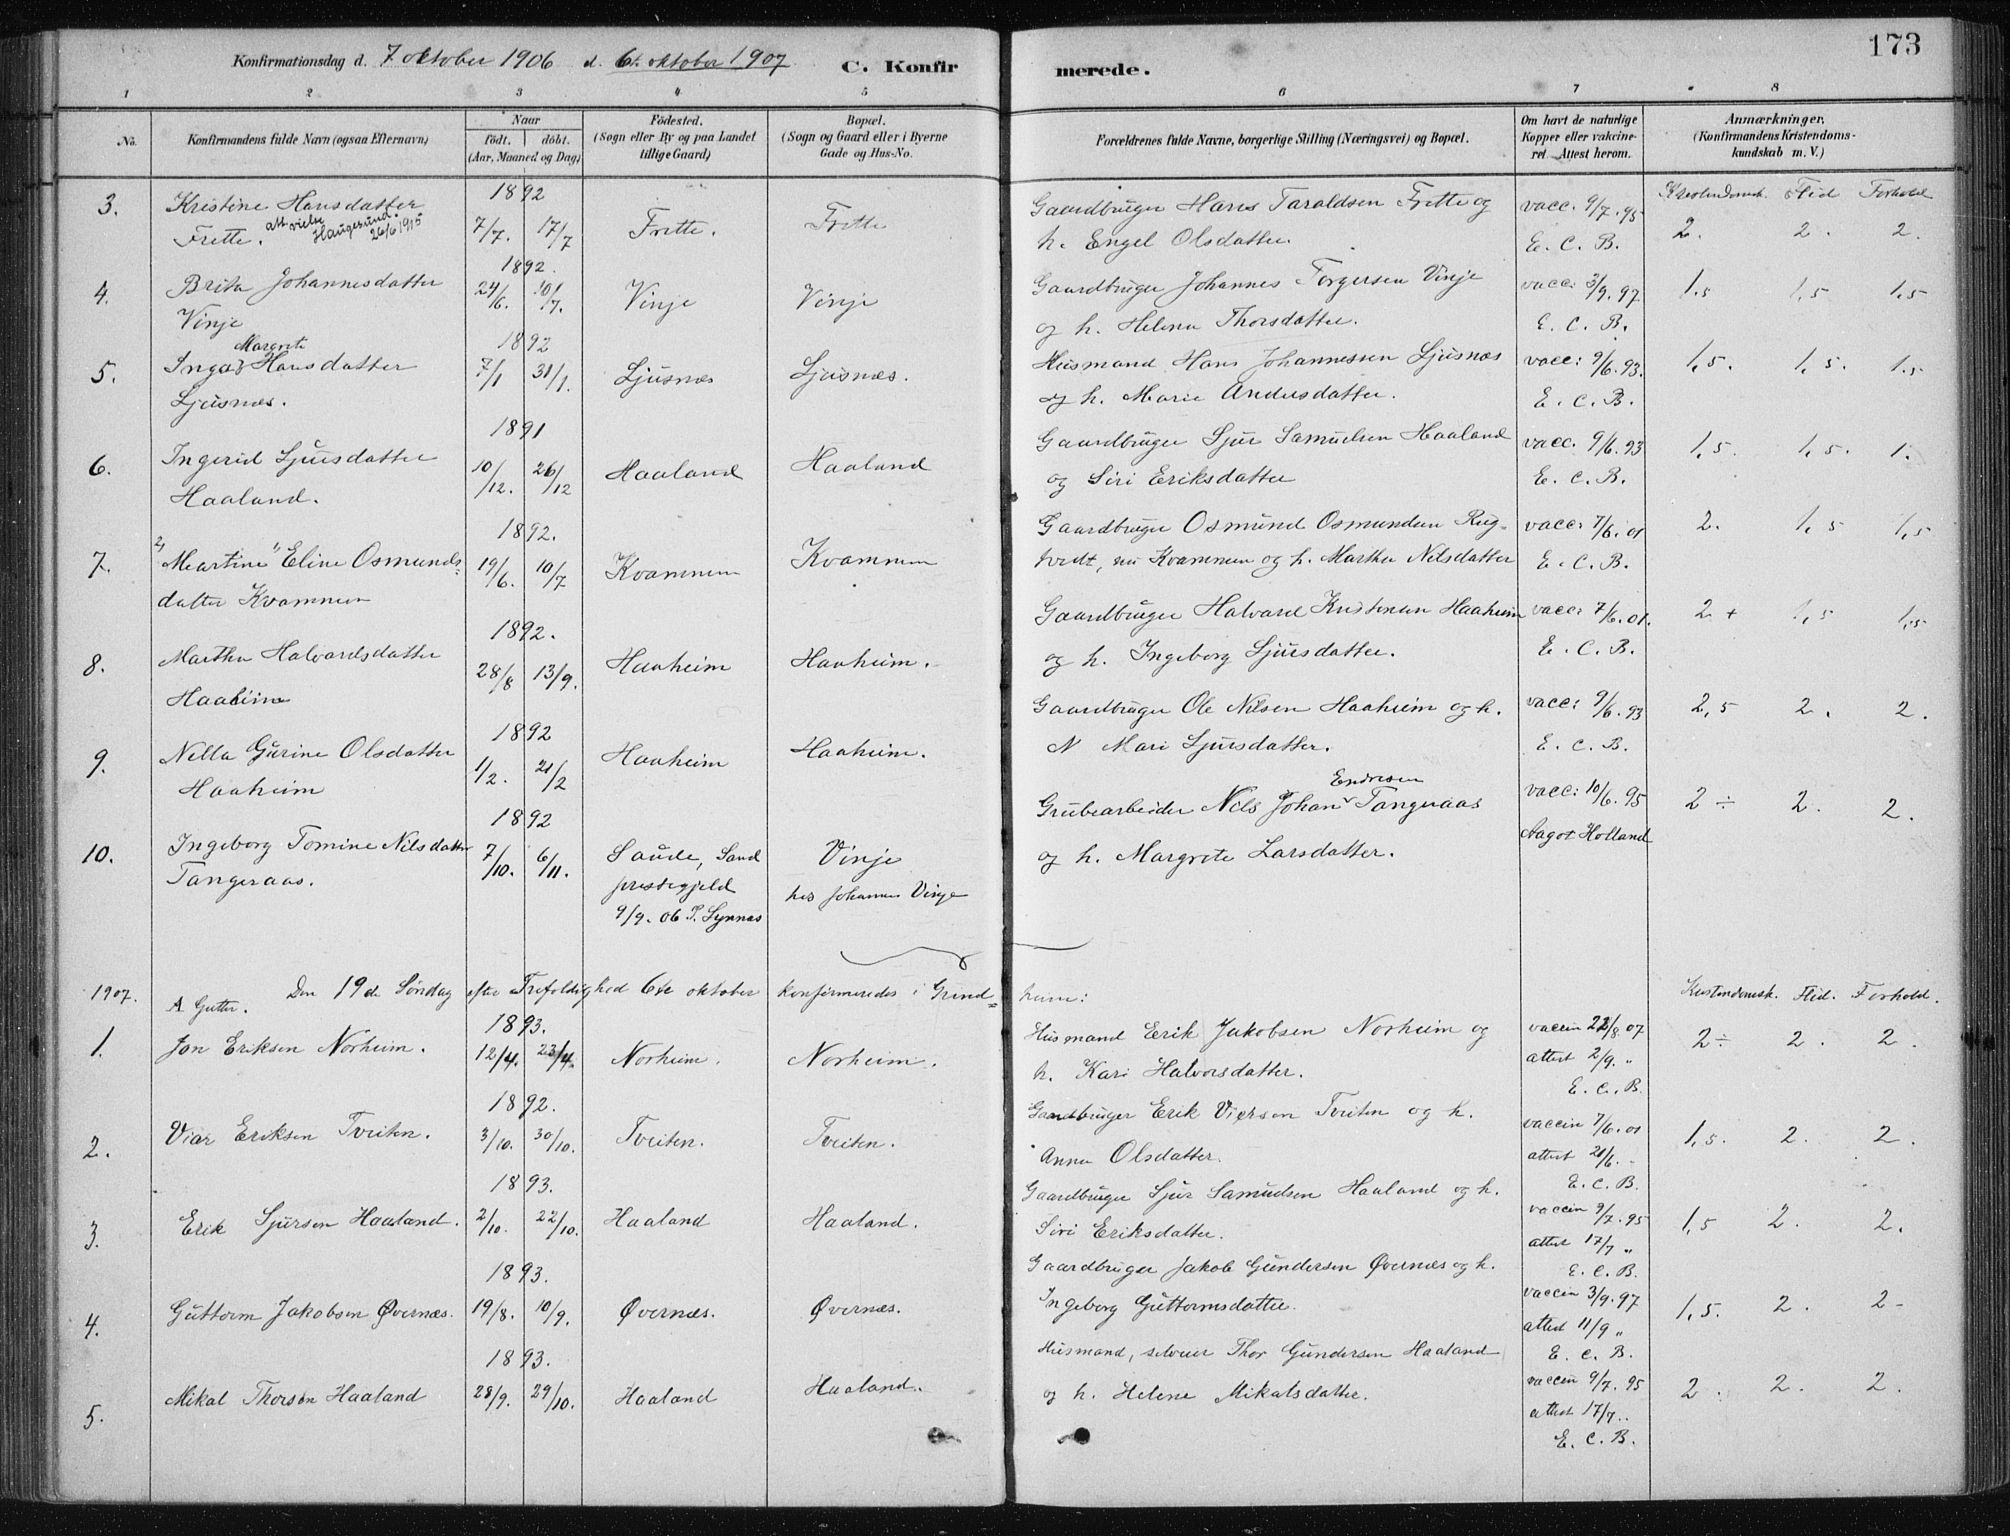 173
Konfirmationsdag d. 7 oktober 1906 d. 6te oktober 1907. C. Konfirmerede.
1 2 3 4 5 6 7 8
No. Konfirmandens fulde Navn (ogsaa Efternavn) Naar født. døbt. (Aar, Maaned og Dag) Fødested. (Sogn eller By og paa Landet tillige Gaard) Bopæl. (Sogn og Gaard eller i Byerne Gade og Hus-No. Forældrenes fulde Navne, borgerlige Stilling (Næringsvei) og Bopæl. Om havt de naturlige Kopper eller vakcineret. Attest herom. Anmærkninger. (Konfirmandens Kristendomskundskab m. V.)
1892 Kristendomsk. Flid Forhold
3. Kristine Hansdatter 7/7. 17/7 Frette. Frette Gaardbruger Hans Taraldsen Frette og vacc. 9/7. 95 2. 2. 2.
Frette. att. vielse Haugesund 26/6 1915 h. Engel Olsdatter. E. C. B.
1892.
4. Brita Johannesdatter 24/6. 10/7. Vinje Vinje Gaardbruger Johannes Torgersen Vinje vacc: 3/9. 97. 1,5 1,5 1,5
Vinje og h. Helena Thorsdatter. E. C. B.
Margrete 1892
5. Inga Hansdatter 7/1 31/1. Ljusnæs Ljusnæs. Husmand Hans Johannessen Ljusnæs vacc: 9/6. 93. 1,5. 1,5. 1,5
Ljusnæs. og h. Marie Andersdatter. E. C. B.
1891
6. Ingerid Sjursdatter 10/12. 26/12 Haaland Haaland Gaardbruger Sjur Samuelsen Haaland vacc. 9/6. 93 1,5. 1,5. 1.
Haaland. og Siri Eriksdatter E. C. B.
1892.
7. Martine Eline Osmunds- 19/6. 10/7 Kvammen Kvammen Gaardbruger Osmund Osmundsen Rug- vacc: 7/6. 01 2. 1,5 1,5
datter Kvammen tvedt, nu Kvammen og h. Martha Nilsdatter E. C. B.
1892.
8. Martha Halvardsdatter 28/8 13/9. Haaheim Haaheim. Gaardbruger Halvard Kristensen Haaheim vacc: 7/6. 01. 2 + 1,5 1,5
Haaheim og h. Ingeborg Sjursdatter. E. C. B.
1892
9. Nella Gurine Olsdatter 1/2. 21/2 Haaheim Haaheim. Gaardbruger Ole Nilsen Haaheim og h. vacc: 9/6. 93 2,5 2. 2.
Haaheim N Mari Sjursdatter. E. C. B.
1892
10. Ingeborg Tomine Nilsdatter 7/10. 6/11. Saude, Sand Vinje Grubearbeider Nils Johan Endresen Tangeraas vacc: 10/6. 95 2 ÷ 2. 2.
Tangeraas. prestegjeld hos Johannes Vinje og h. Margrete Larsdatter. Aagot Holland
9/9. 06 P. Synnæs
1907. Den 19de Søndag efter Trefoldighed 6te oktober konfirmeredes i Grindheim: Kristendomsk. Flid. Forhold.
A Gutter.
1893.
1. Jon Eriksen Norheim. 12/4. 23/4. Norheim. Norheim. Husmand Erik Jakobsen Norheim og vaccin 22/8 07 2÷ 2. 2.
h. Kari Halvorsdatter. attest 2/9. „
E. C. B.
1892.
2. Viar Eriksen Tveiten. 3/10. 30/10. Tveiten. Tveiten. Gaardbruger Erik Viarsen Tveiten og h. vaccin 7/6. 01 1,5. 2. 2.
Anna Olsdatter. attest 21/6. „
E. C. B.
1893.
3. Erik Sjursen Haaland. 2/10. 22/10. Haaland Haaland. Gaardbruger Sjur Samuelsen Haaland og h. vaccin 9/7. 95 1,5 2. 2.
Siri Eriksdatter. attest 17/7 „
E. C. B.
1893.
4. Guttorm Jakobsen Øvernæs. 19/8. 10/9. Øvernæs. Øvernæs. Gaardbruger Jakob Gundersen Øvernæs og h. vaccin 3/9. 97 1,5. 2. 2-
Ingeborg Guttormsdatter. attest 11/9 „
E. C. B.
1893.
5. Mikal Thorsen Haaland 28/9. 29/10. Haaland Haaland. Husmand, selveier Thor Gundersen Haaland vaccin 9/7. 95 2. 2. 2.
og h. Helene Mikalsdatter. attest 17/7..
E. C. B.